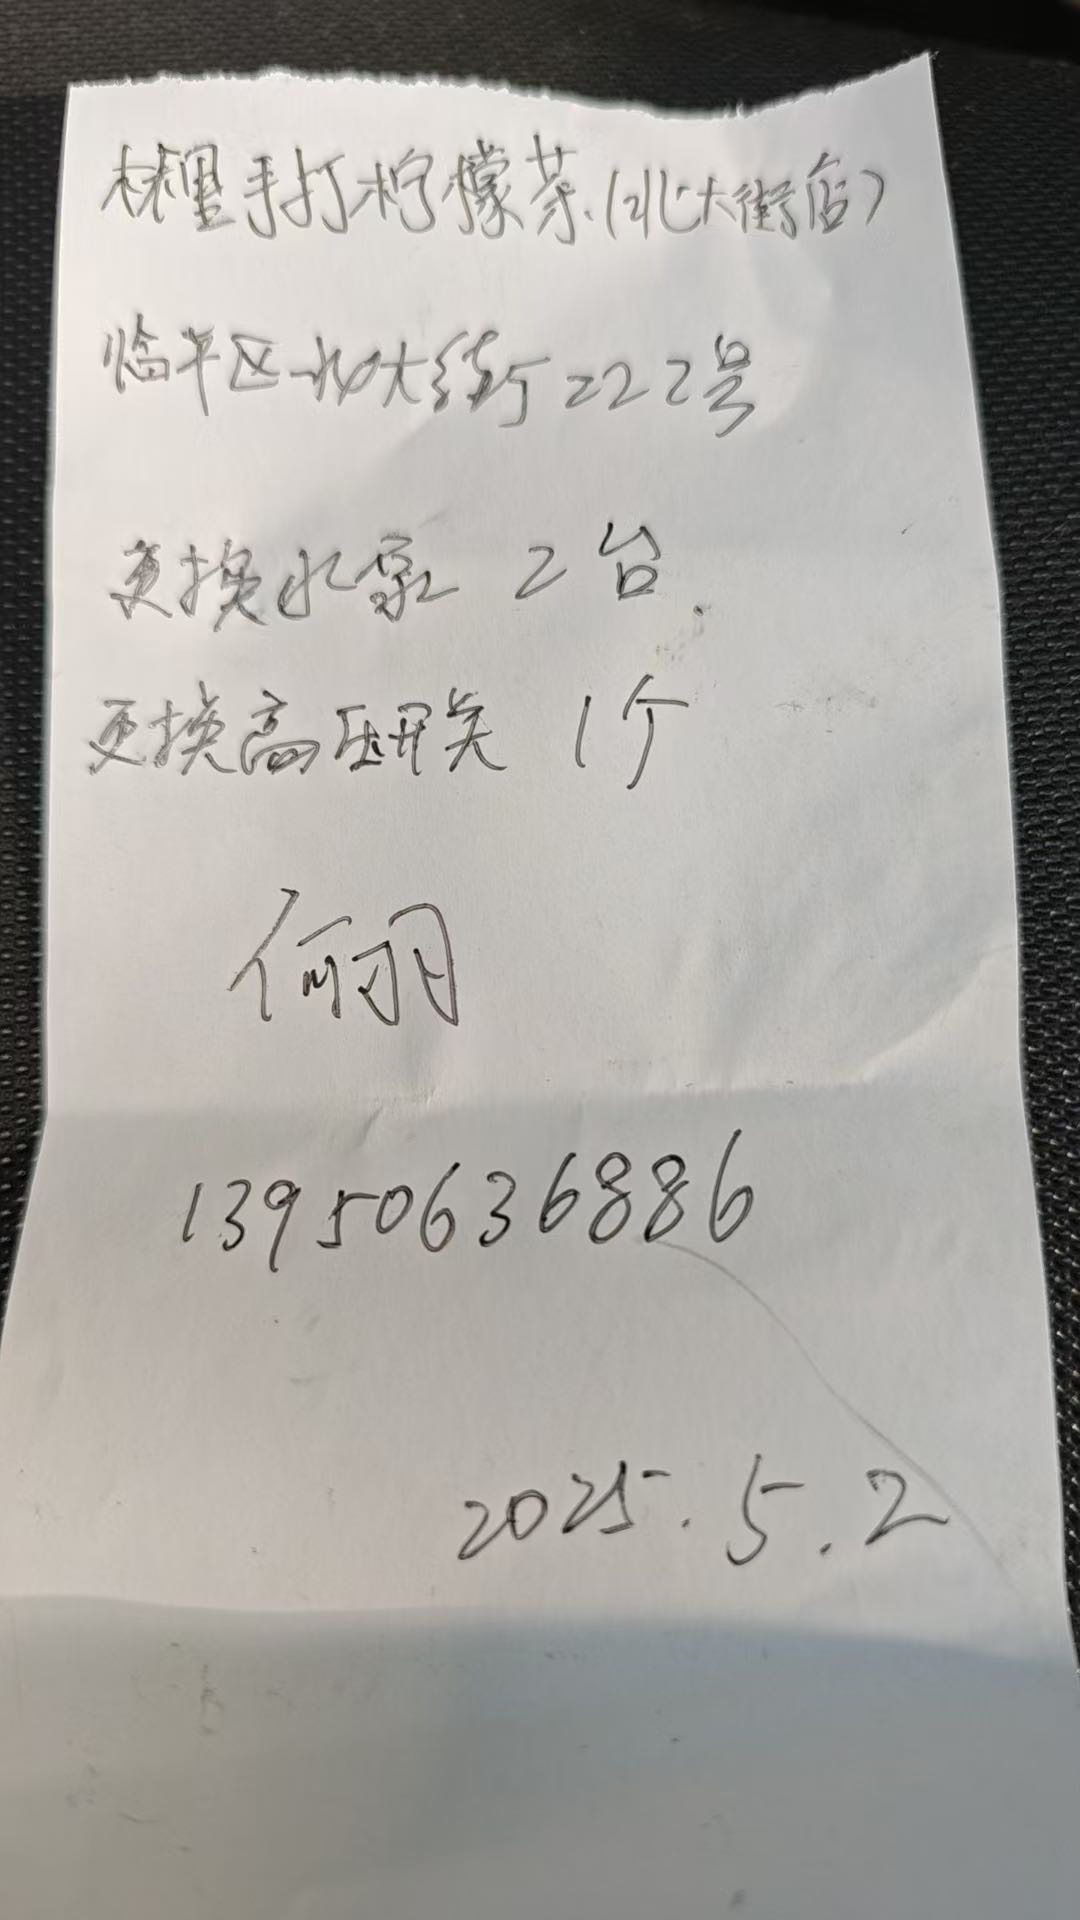 林里手打柠檬茶(北大街店)
临平区北大街222号
更换水泵 2台.
更换高压开关 1个
何羽
13950636886
2025.5.2